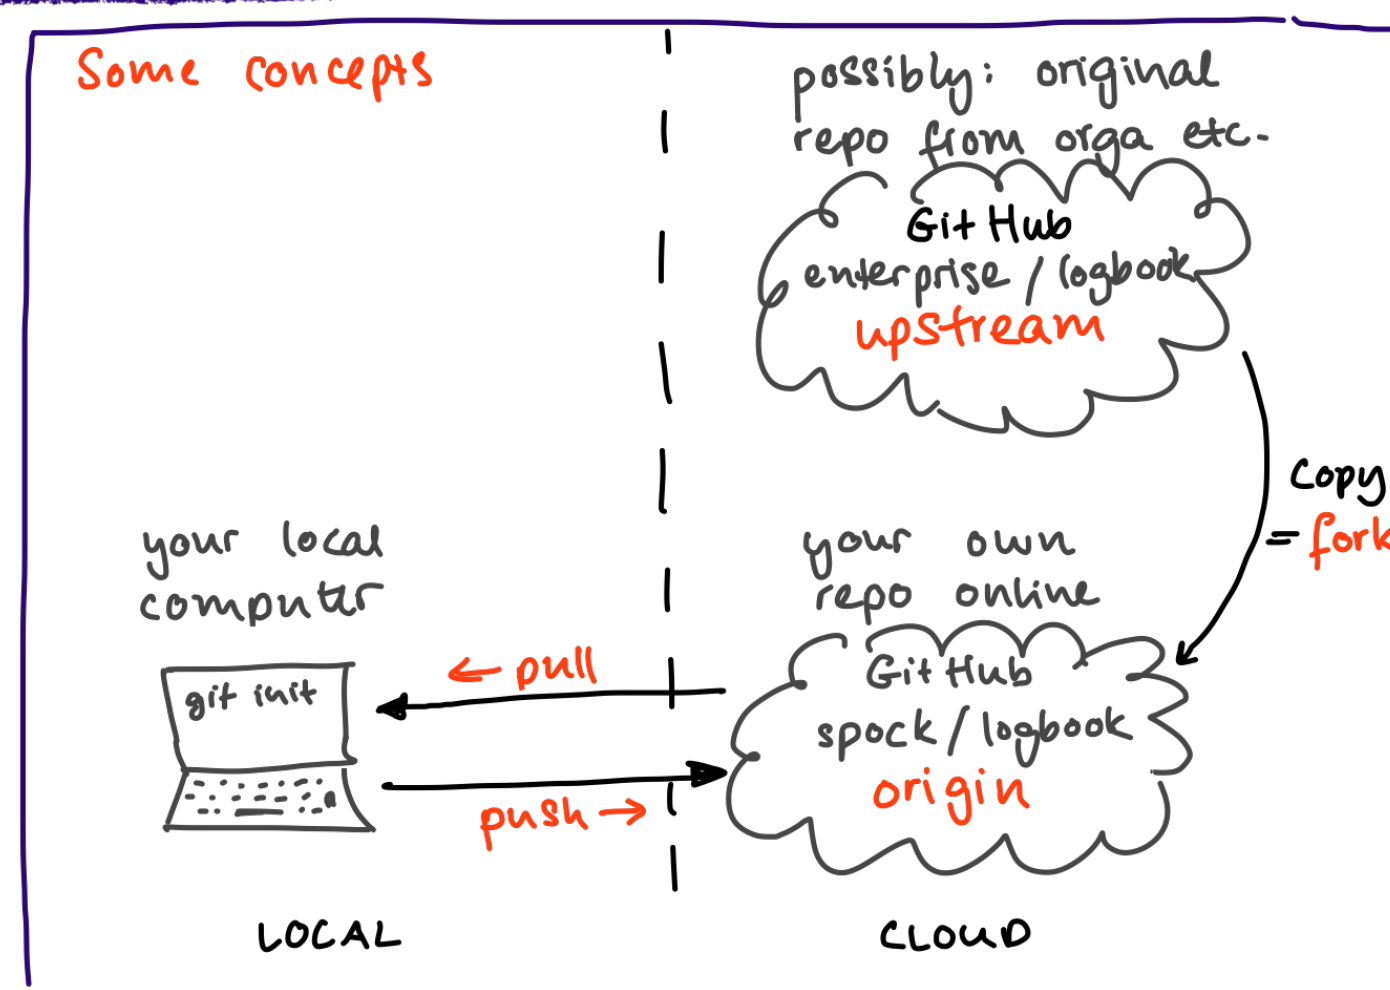 Some concepts
possibly: original
repo from orga etc.
GitHub
enterprise / logbook
upstream
copy
= fork
your local
computer
your own
repo online
git init
← pull
push →
GitHub
spock / logbook
origin
LOCAL
CLOUD